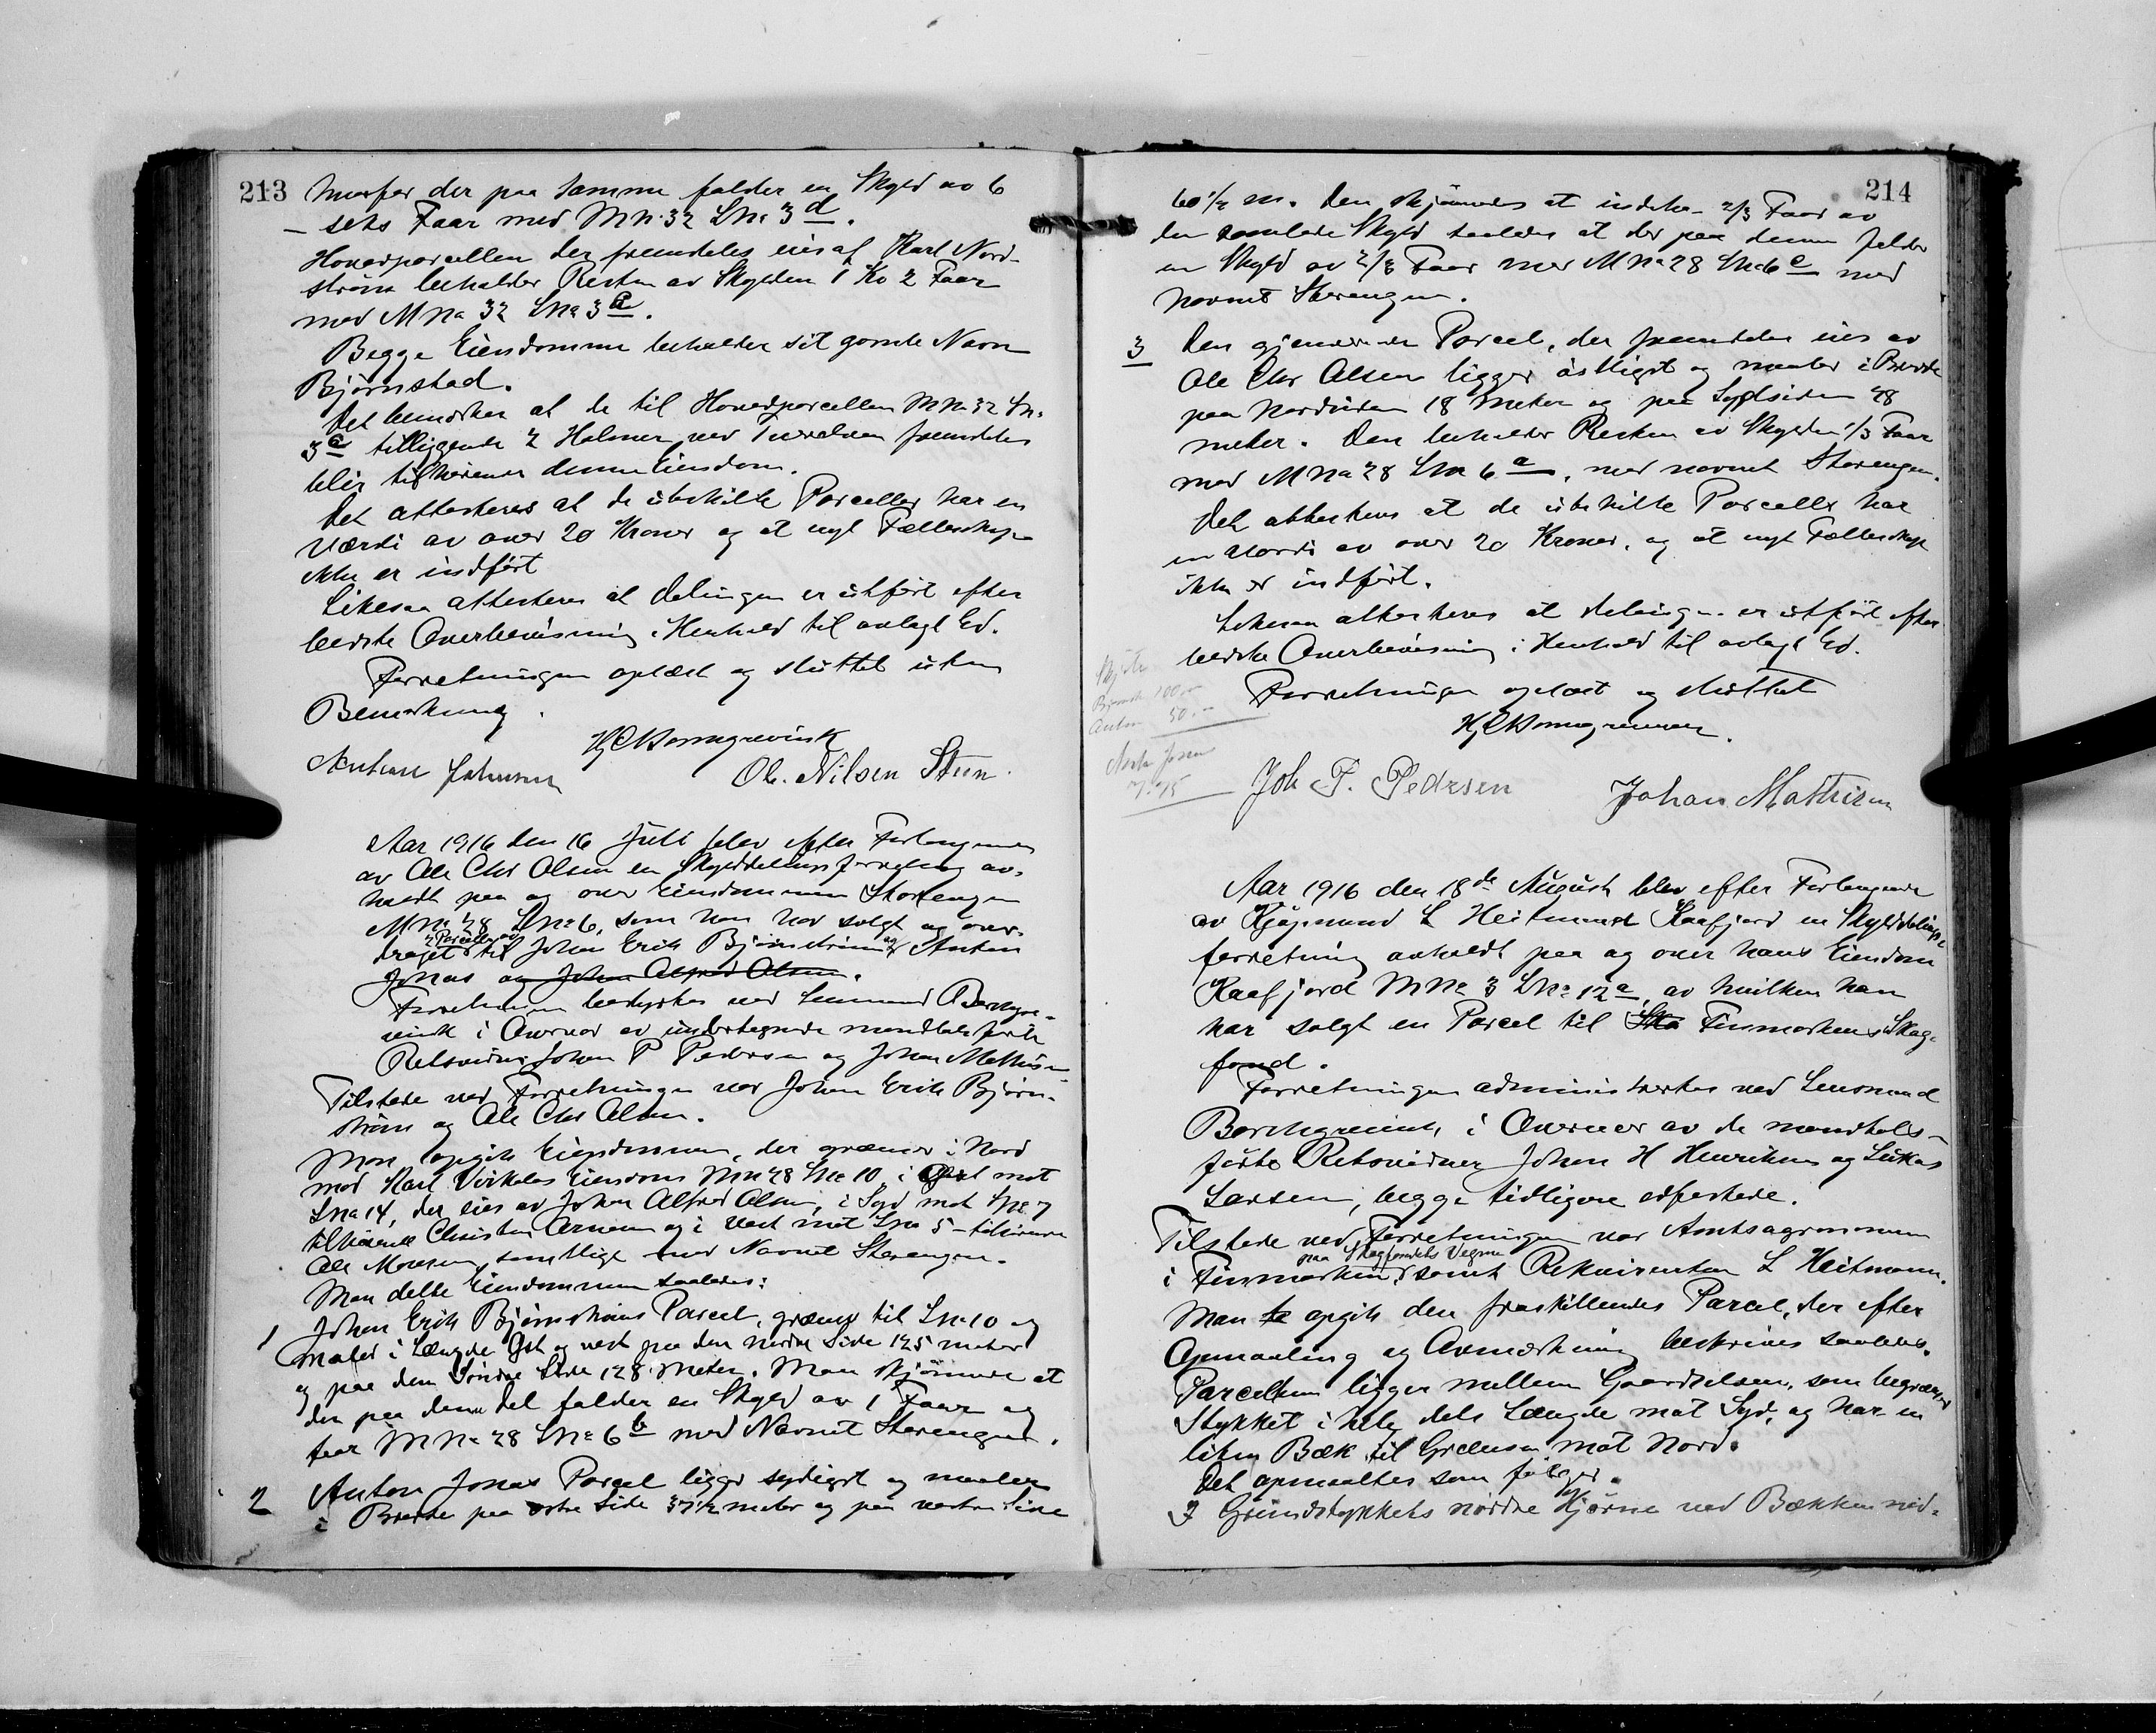 213
hvorfor der paa samme falder en Skyld av 6
– seks Faar med M No 32 LNo 3 d.
Hovedparcellen der fremdeles eies af Karl Nord-
strøm beholder Resten av Skylden 1 Ko 2 Faar
med M No 32 LNo 3 a.
Begge Eiendomme beholder sit gamle Navn
Bjørnstad.
Det bemerkes at de til Hovedparcellen M No 32 LN.
3 a tilliggende 2 Holmer ved fremdeles
blir tilhørende denne Eiendom.
Det attesteres at de utskilte Parceller har en
Værdi av over 20 Kroner og at nyt Fællesskap
ikke er indført
Likesaa attesteres at Delingen er utført efter
bedste Overbevisning i Henhold til avlagt Ed.
Forretningen oplæst og sluttet uten
Bemerkning.
HCBorchgrevink
Johnsen Ole Nilsen Steen.
Aar 1916 den 16 Juli blev efter Forlangende
av Ole Chr Olsen en Skylddelingsforretning av-
holdt paa og over Eiendommen Storengen
M No 28 LNo 6, som han har solgt og over-
draget 2 Parceller av til Johan Erik Bjørnstrøm og Anton
Jonas og Johan Alfred Olsen.
Forretningen bestyrtes ved Lensmand Borchgre-
vink i Overvær av undertegnede mandtalsførte
Retsvidner Johan P Pedersen og Johan Mathisen
Tilstede ved Forretningen var Johan Erik Bjørn-
strøm og Ole Chr Olsen.
Man opgik Eiendommen, der grænser i Nord
mod Karl Eiendom M No 28 LNo 10, i Øst mot
LNo 14, der eies av Johan Alfred Olsen, i Syd mot LNo 7
tilhørende Christen og i Vest mot LNo 5 – tilhørende
Ole samtlige med Navnet Storengen.
Man delte Eiendommen saaledes:
1 Johan Erik Bjørnstrøms Parcel, grænser til LNo 10 og
maaler i Længde Øst og vest paa den nordre Side 125 meter
og paa den Søndre Side 128 Meter. Man skjønnede at
der paa denne Del falder en Skyld av 1 Faar og
faar M No 28 LNo 6 b med Navnet Storengen.
2 Anton Jonas Parcel ligger sydligst og maaler
i Bredde paa østre Side 37½ meter og paa vestre Side
214
60½ m. Den skjønnedes at indeha 2/3 Faar av
den samlede Skyld saaledes at der paa denne falder
en Skyld av 2/3 Faar med M No 28 LNo 6 c med
navnet Storengen.
3 Den gjenværende Parcel, der fremdeles eies av
Ole Chr Olsen ligger østligst og maaler i Bredde
paa Nordsiden 18 Meter og paa Sydsiden 28
meter. Den beholder Resten av Skylden 1/3 Faar
med M No 28 LNo 6 a, med navnet Storengen.
Det attesteres at de utskilte Parceller har
en Værdi av over 20 Kroner, og at nyt Fællesskap
ikke er indført.
Likesaa attesteres at delingen er utført efter
bedste Overbevisning i Henhold til avlagt Ed.
Forretningen oplæst og sluttet
Skjøte
100.00
Anton 50.–
HCBorchgrevink.
Joh P. Pedersen Johan Mathisen
Aar 1916 den 18de August blev efter Forlangende
av Kjøpmand L Heitmann Kaafjord en Skylddelings-
forretning avholdt paa og over hans Eiendom
Kaafjord M No 3 LNo 12 a, av hvilken han
har solgt en Parcel til Sko Finmarkens Skog-
fond.
Forretningen administrertes ved Lensmand
Borchgrevink, i Overvær av de mandtals-
førte Retsvidner Johan H Henriksen og Lukas
Larsen, begge tidligere edfæstede.
Tilstede ved Forretningen var Amtsagronomen
i Finmarken paa Skogfondets Vegne, samt Rekvirenten L Heitmann.
Man opgik den fraskillendes Parcel, der efter
Opmaaling og Avmerkning beskrives saaledes.
Parcellen ligger mellem Gaardselven, som begrænser
Stykket i hele dets Længde mot Syd, og har en
liten Bæk til Grænsen mot Nord.
Det opmaaltes som følger.
I Grundstykkets nordre Hjørne ved Bækken ned-